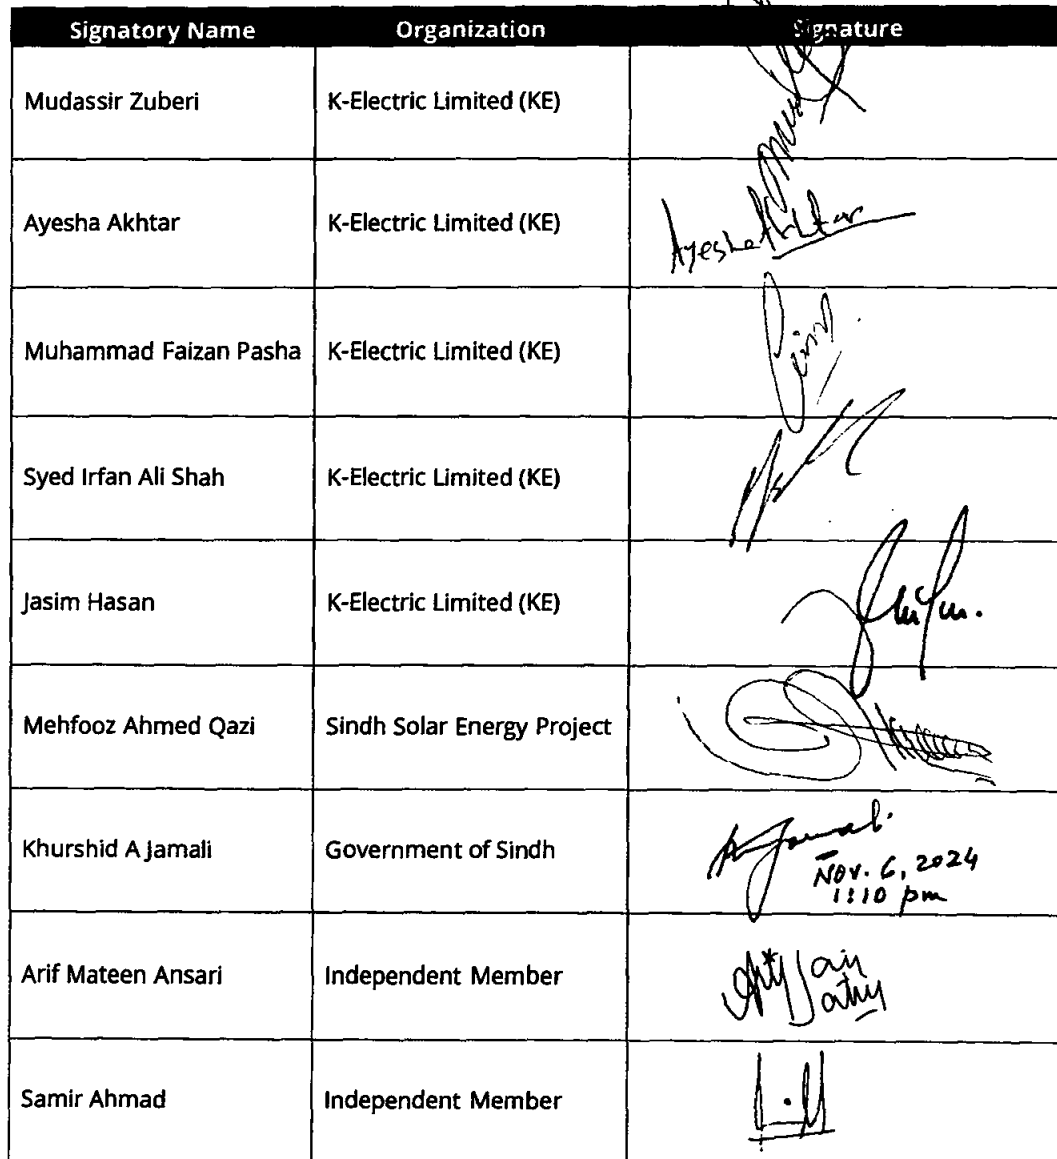 Signatory Name Organization Signature
Mudassir Zuberi K-Electric Limited (KE)
Ayesha Akhtar K-Electric Limited (KE) Ayesha Akhtar
Muhammad Faizan Pasha K-Electric Limited (KE)
Syed Irfan Ali Shah K-Electric Limited (KE)
Jasim Hasan K-Electric Limited (KE)
Mehfooz Ahmed Qazi Sindh Solar Energy Project
Khurshid A Jamali Government of Sindh Jamali
Nov. 6, 2024
1:10 pm
Arif Mateen Ansari Independent Member
Samir Ahmad Independent Member